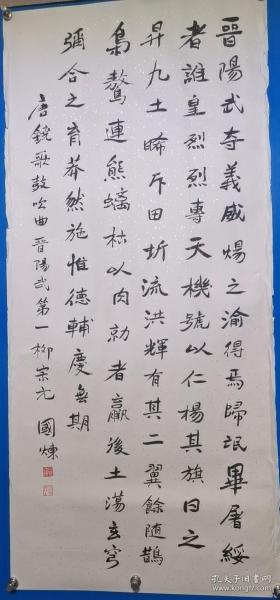 晉陽武奮義威煬之渝得焉歸氓畢屠綏
者誰皇烈烈專天機號以仁楊其旗日之
昇九土晞斥田圻流洪輝有其二翼餘隨鵲
梟驁連熊螭枯以肉勍者羸後土蕩玄穹
彌合之育莽然施惟德輔慶無期
唐鐃歌鼓吹曲晉陽武第一柳宗元 國煉
孔夫子旧书网